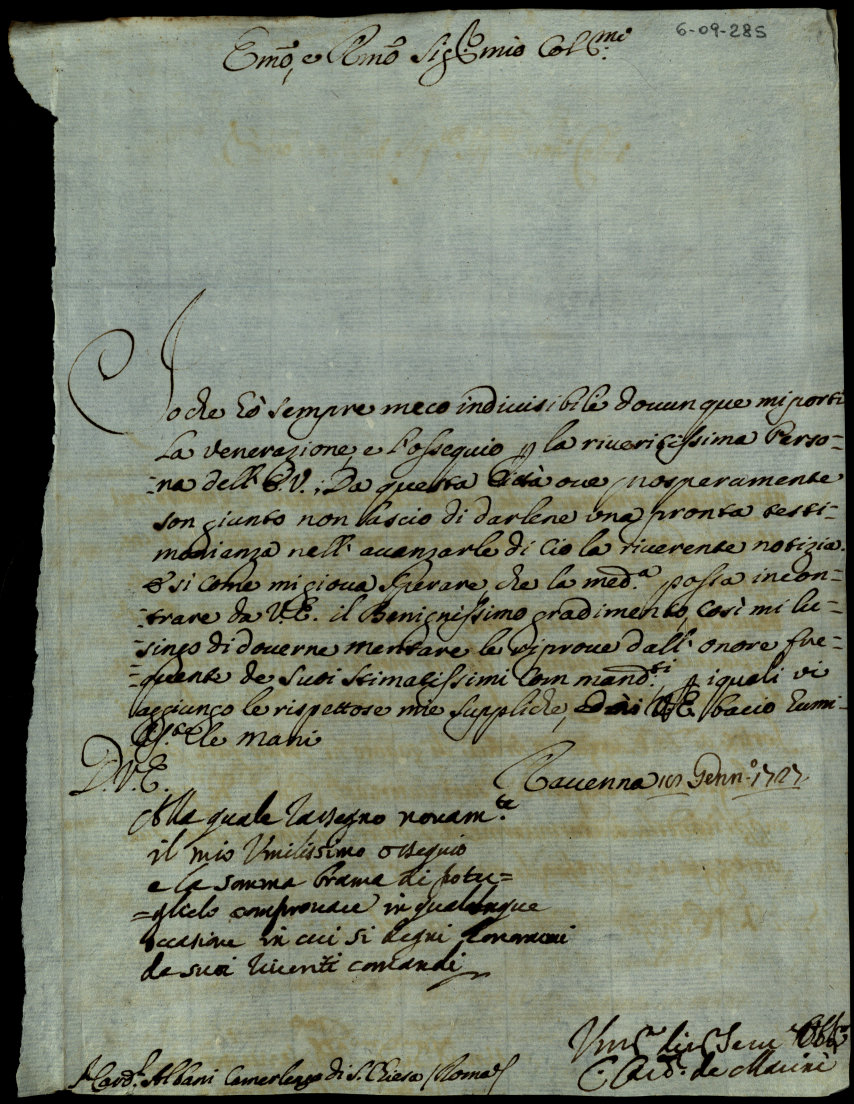 6-09-285
Emo, e Rmo Sigr mio Colmo
Io che hò sempre meco indiuisibile douunque mi porti
La venerazione, e l'ossequio p la riueritissima Perso=
=na dell'E.V.; Da questa Città oue prosperamente
son giunto non lascio di darlene una pronta testi=
monianza nell' auanzarle di ciò la riuerente notizia.
E si come mi gioua sperare che la med.a possa incon=
=trare da V.E. il Benignissimo gradimento, così mi lu=
=singo di douerne meritare le riproue dall' onore fre=
=quente de suoi stimatissimi Commandti p i quali vi
aggiungo le rispettose mie suppliche, V.E. bacio humi=
le mani
D.V.E.
Rauenna Genn.o 1727
Alla quale rassegno nouam.te
il mio Umilissimo ossequio
e la somma brama di poter=
=glielo comprouare in qualunque
occasione in cui si degni honorarmi
de suoi riueriti comandi
Sr Card.l Albani Camerlengo di S. Chiesa (Roma)
Seru Obbmo
C. Card. de Marini